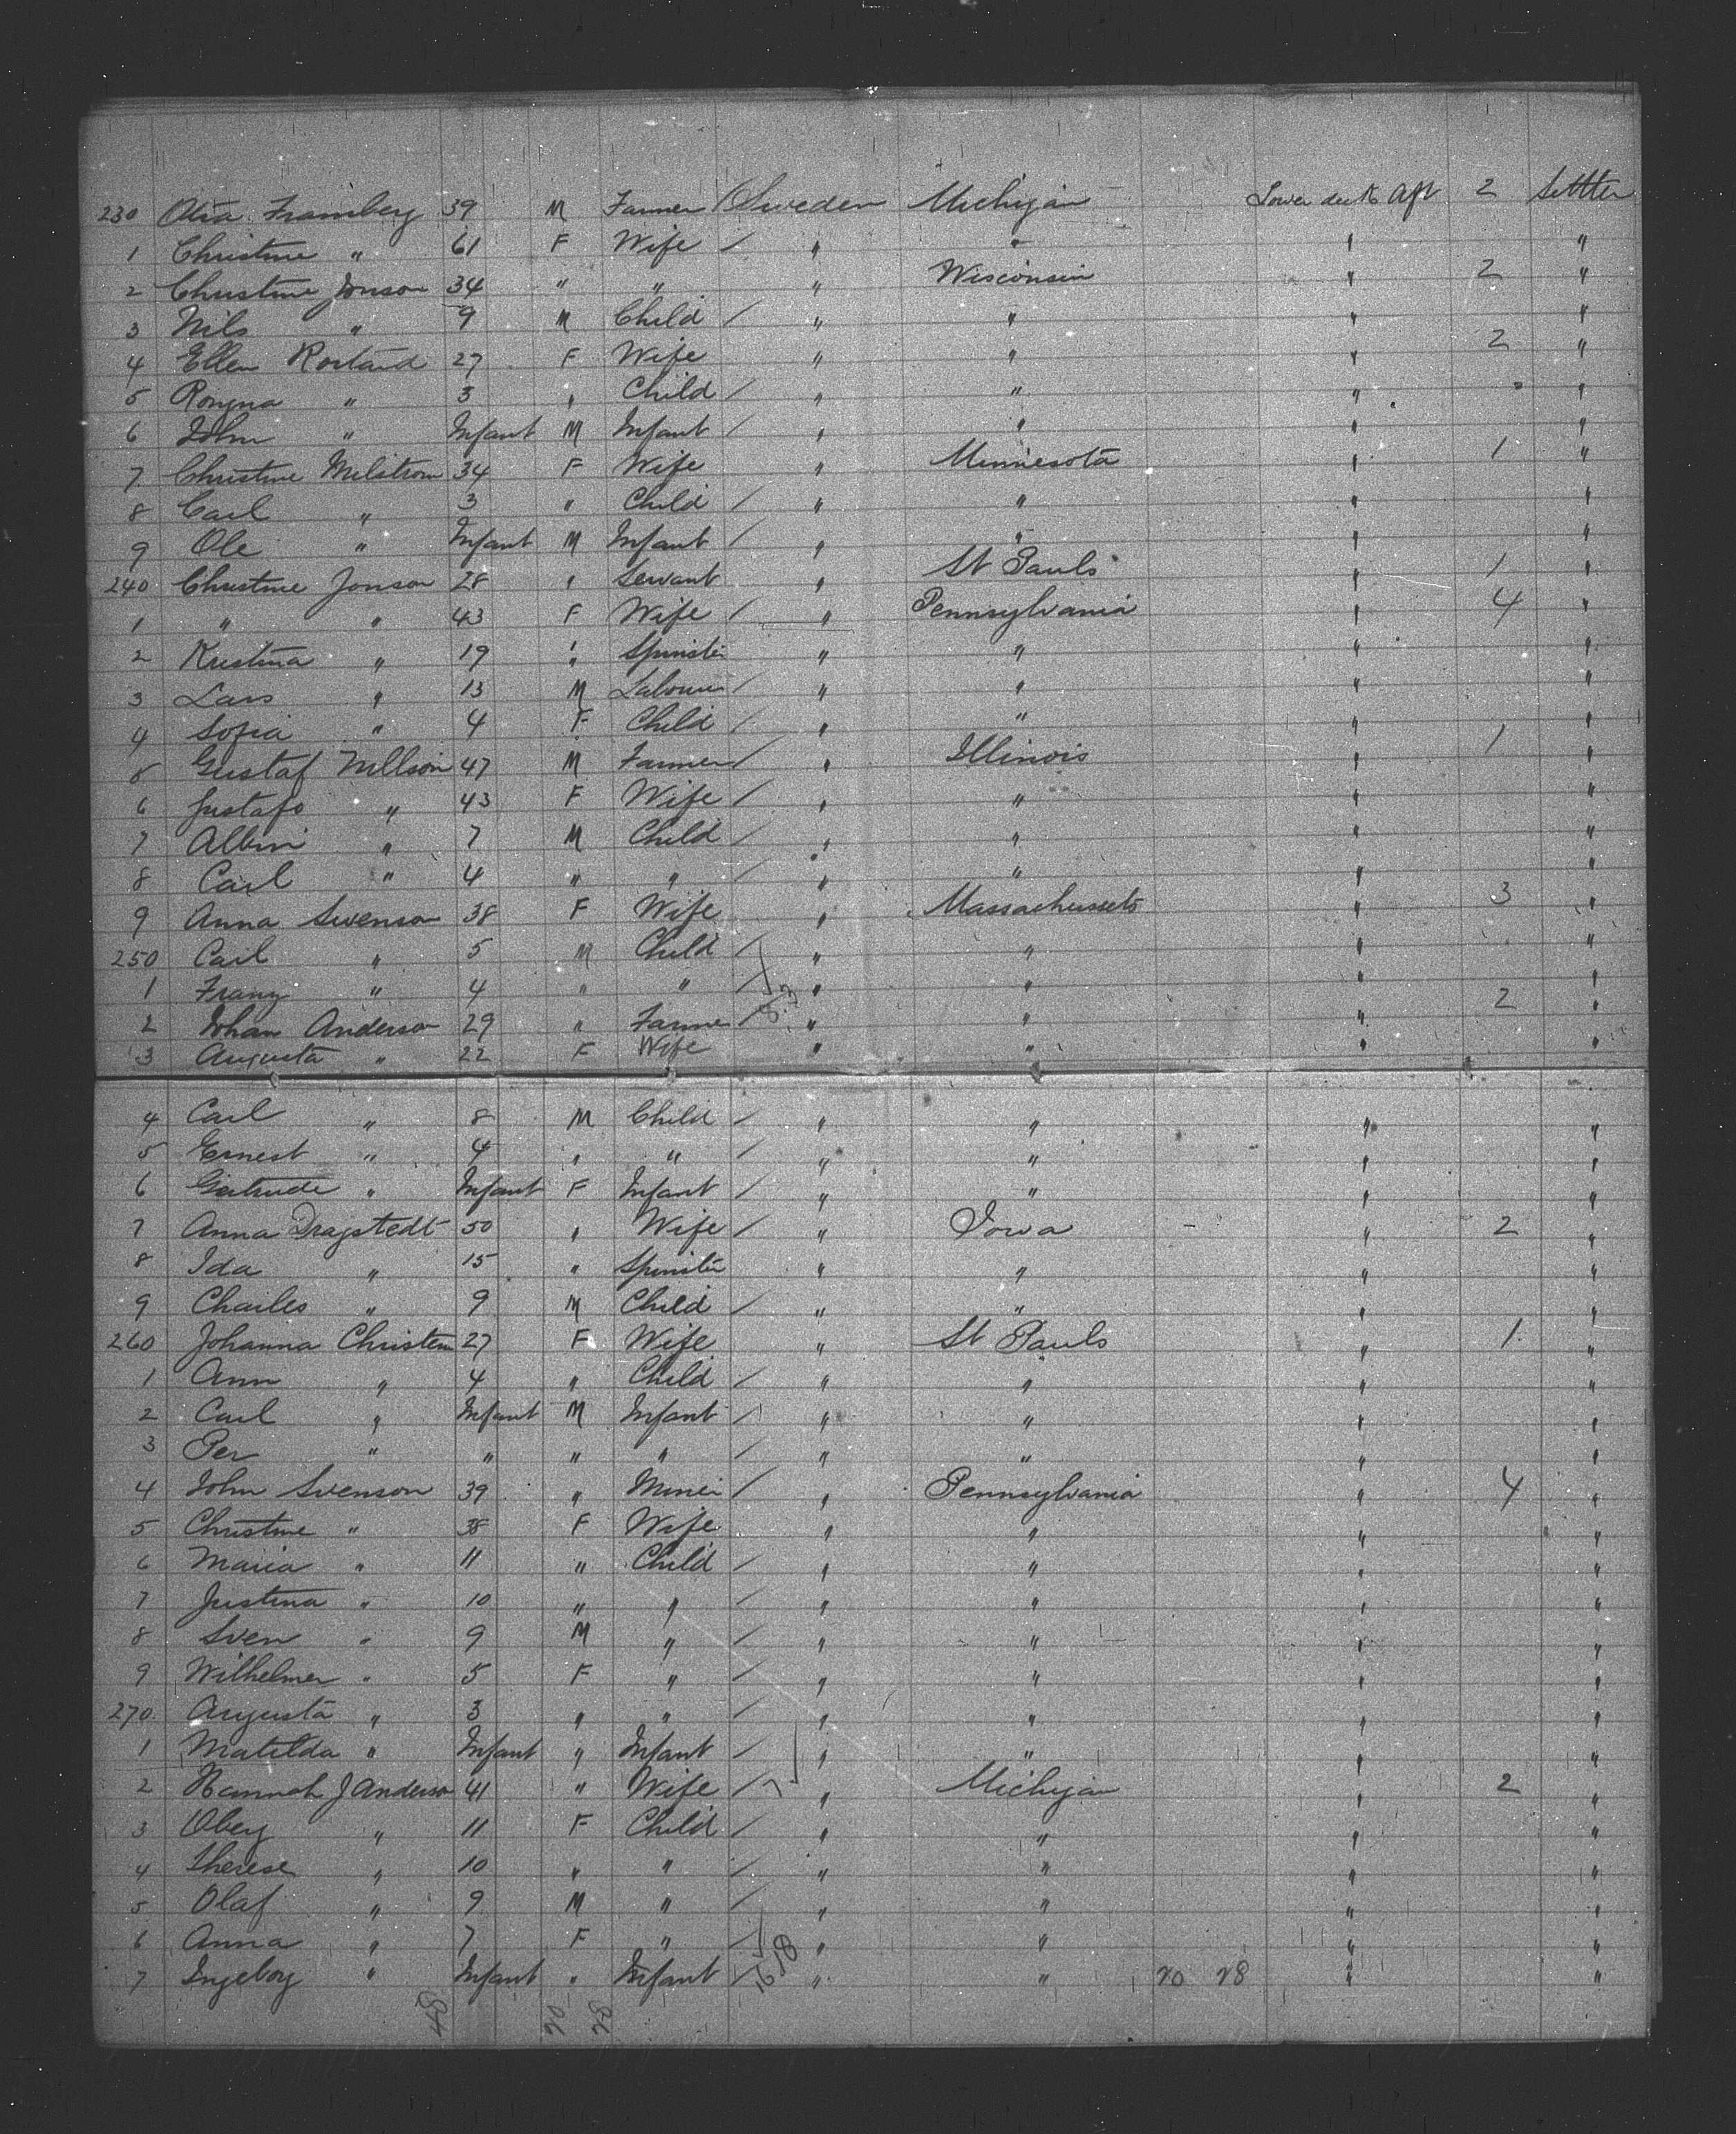 230 Olia Framberg 39 M Farmer / Sweden Michigan Lower deck Aft 2 Settler
1 Christine " 61 F Wife / " " " "
2 Christine Jonson 34 " " " Wisconsin " 2 "
3 Nils " 9 M Child / " " " "
4 Ellen Rostand 27 F Wife " " " 2 "
5 Rongna " 3 " Child / " " " "
6 John " Infant M Infant / " " " "
7 Christine Milstrom 34 F Wife " Minnesota " 1 "
8 Carl " 3 " Child / " " " "
9 Ole " Infant M Infant / " " " "
240 Christine Jonson 28 " Servant " St Pauls " 1 "
1 " " 43 F Wife / " Pennsylvania " 4 "
2 Kristina " 19 " Spinster " " " "
3 Lars " 13 M Labourer / " " " "
4 Sofia " 4 F Child / " " " "
5 Gustaf Nillson 47 M Farmer / " Illinois " 1 "
6 Justafo " 43 F Wife / " " " "
7 Albin " 7 M Child / " " " "
8 Carl " 4 " " / " " " "
9 Anna Swenson 38 F Wife " Massachussets " 3 "
250 Carl " 5 M Child / " " " "
1 Franz " 4 " " / " " " "
2 Johan Anderson 29 " Farmer / " " " 2 "
3 Augusta " 22 F Wife " " " "
4 Carl " 8 M Child / " " " "
5 Ernest " 4 " " / " " " "
6 Gertrude " Infant F Infant / " " " "
7 Anna Dragstedt 50 " Wife / " Iowa " 2 "
8 Ida " 15 " Spinster " " " "
9 Charles " 9 M Child / " " " "
260 Johanna Christen 27 F Wife " St Pauls " 1 "
1 Ann " 4 " Child / " " " "
2 Carl " Infant M Infant / " " " "
3 Per " " " " / " " " "
4 John Svenson 39 " Miner / " Pennsylvania " 4 "
5 Christine " 38 F Wife " " " "
6 Maria " 11 " Child / " " " "
7 Justina " 10 " " / " " " "
8 Sven " 9 M " / " " " "
9 Wilhelmer " 5 F " / " " " "
270 Augusta " 3 " " / " " " "
1 Matilda " Infant " Infant / " " " "
2 Hannah J Anderson 41 " Wife / 7 " Michigan " 2 "
3 Oberg " 11 F Child / " " " "
4 Therese " 10 " " / " " " "
5 Olaf " 9 M " / " " " "
6 Anna " 7 F " / " " " "
7 Ingeborg " Infant " Infant / " " 20 28 " "
48 20 28